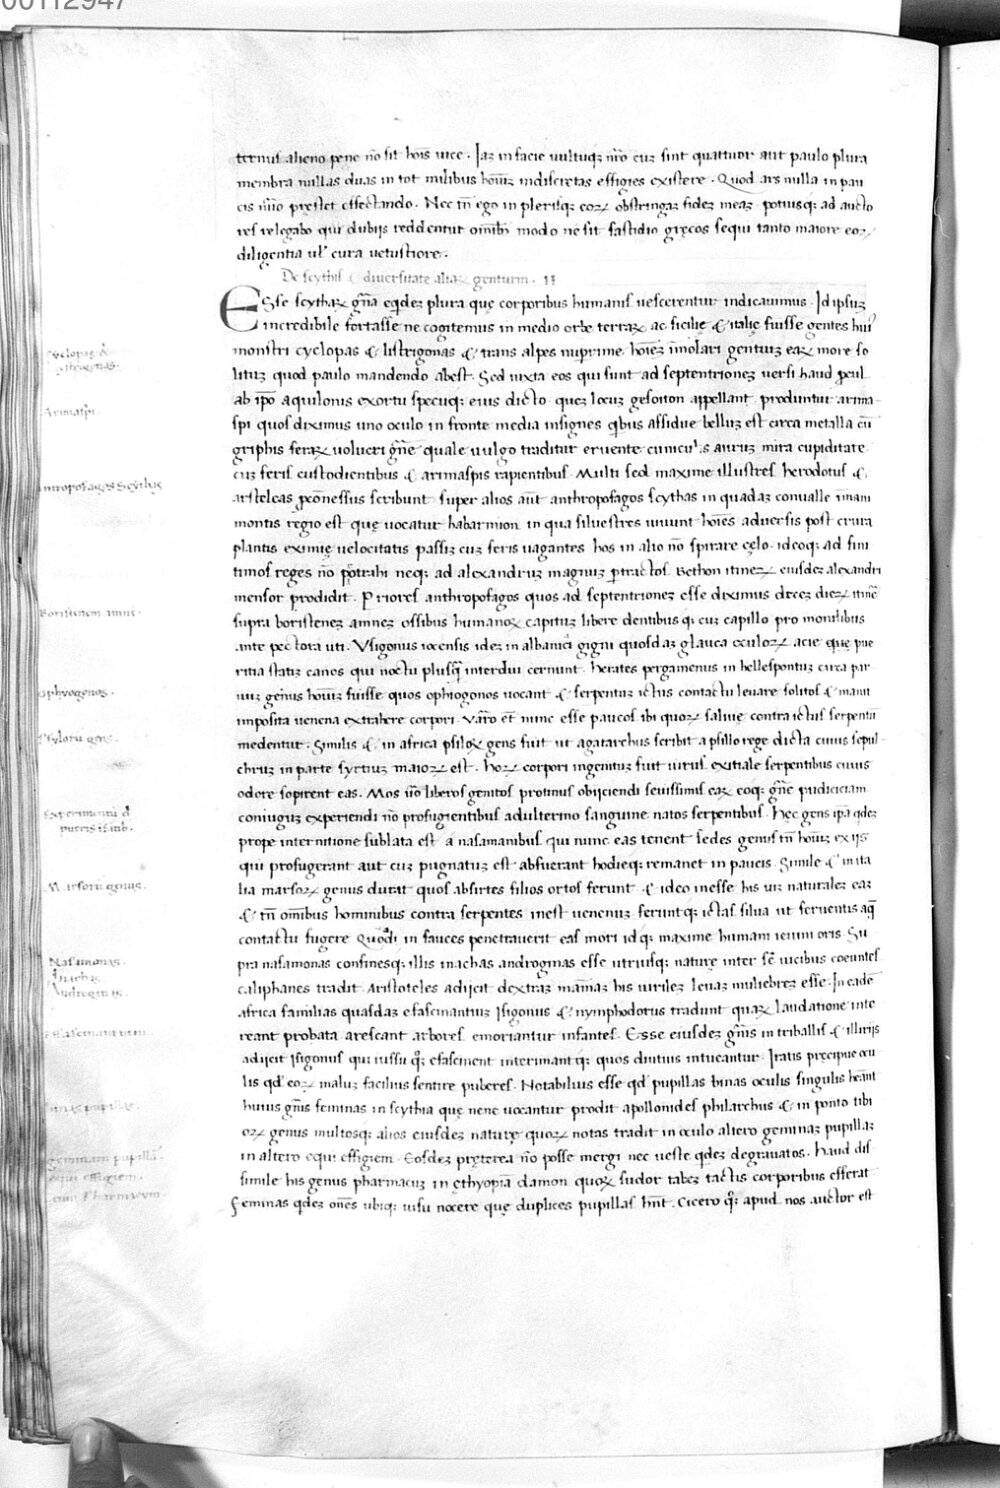 00112947
ternus alieno pene nō sit hoīs uice. Iaʒ in facie uultuqʒ nr̄o cuʒ sint quattuor aut paulo plura
membra nullas duas in tot milibus hoīuʒ indiscretas effigies existere. Quod ars nulla in pau
cis nūo prestet effectando. Nec tn̄ ego in plerisqʒ eoꝝ obstringaʒ fideʒ meaʒ potiusqʒ ad aucto
res relegabo qui dubijs reddentur omībꝰ modo ne sit fastidio gręcos sequi tanto maiore eoꝝ
diligentia ul̄ cura uetustiore.
De scythis & diuersitate aliaꝝ gentium. II
Esse scythaꝝ gn̄a eqdeʒ plura quę corporibus humanis uescerentur indicauimus. Id ipsuʒ
incredibile fortasse ne cogitemus in medio orbe terraꝝ ac sicilię & italię fuisse gentes huiꝰ
monstri cyclopas & listrigonas & trans alpes nuprime hoīeʒ īmolari gentiuʒ eaꝝ more so
lituʒ quod paulo mandendo abest. Sed iuxta eos qui sunt ad septentrioneʒ uersi haud ꝓcul
ab ip̄o aquilonis exortu specuqʒ eius dicto queʒ locuʒ gesoiton appellant produntur arima
spi quos diximus uno oculo in fronte media insignes qbus assidue belluʒ est circa metalla cū
griphis feraꝝ uolucri gn̄e quale uulgo traditur eruente cuniculis auruʒ mira cupiditate
cuʒ feris custodientibus & arimaspis rapientibus. Multi sed maxime illustres herodotus &
aristeleas ꝓconessius scribunt super alios aūt anthropofagos scythas in quadaʒ conualle īmani
montis regio est quę uocatur habarmion in qua siluestres uiuunt hoīes aduersis post crura
plantis eximię uelocitatis passiʒ cuʒ feris uagantes hos in alio nō spirare cęlo ideoqʒ ad fini
timos reges nō ꝑtrahi neqʒ ad alexandruʒ magnuʒ ꝑtractos Bethon itineꝝ eiusdeʒ alexandri
mensor prodidit. Priores anthropofagos quos ad septentrioneʒ esse diximus deceʒ dieꝝ itinē
supra boristeneʒ amneʒ ossibus humanoꝝ capituʒ libere dentibus qʒ cuʒ capillo pro monilibus
ante pectora uti. Vsigonus iocensis ideʒ in albania gigni quosdaʒ glauca oculoꝝ acie quę pue
ritia statiʒ canos qui noctu plusqʒ interdui cernunt. herates pergamenus in hellespontuʒ circa par
uuʒ genus hoīuʒ fuisse quos ophiogonos uocant & serpentuʒ ictus contactu leuare solitos & manu
imposita uenena extrahere corpori. Varro et̄ nunc esse paucos ibi quoꝝ saliuę contra ictus serpentū
medentur. Similis & in africa psiloꝝ gens fuit ut agatarchus scribit a psillo rege dicta cuius sepul
chruʒ in parte syrtiuʒ maioꝝ est. hoꝝ corpori ingenituʒ fuit uirus exitiale serpentibus cuius
odore sopirent eas. Mos uo liberos genitos protinus obijciendi seuissimis eaꝝ eoqʒ gn̄e pudiciciam
coniuguʒ experiendi nō profugientibus adulterino sanguine natos serpentibus. Hec gens ip̄a qdeʒ
prope internitione sublata est a nasamanibus qui nunc eas tenent sedes genus tn̄ hoīuʒ ex ijs
qui profugerant aut cuʒ pugnatuʒ est absuerant hodieqʒ remanet in paucis. Simile & in ita
lia marsoꝝ genus durat quos absirtes filios ortos ferunt & ideo inesse his uiʒ naturaleʒ eaʒ
& tn̄ omībus hominibus contra serpentes inest uenenuʒ feruntqʒ ictas silua ut feruentis aqę
contactu fugere Quodi in fauces penetrauerit eas mori idqʒ maxime humani ieiuni oris. Su
pra nasamonas confinesqʒ illis inachas androginas esse utriusqʒ naturę inter sē uicibus coeuntes
caliphanes tradit. Aristoteles adijcit dextraʒ māmaʒ his uirileʒ leuaʒ muliebreʒ esse. In eadē
africa familias quasdaʒ efascinantiuʒ Isigonus & nymphodorus tradunt quaꝝ laudatione inte
reant probata arescant arbores emoriantur infantes. Esse eiusdeʒ gn̄is in triballis & illirijs
adijcit Isigonus qui iussu qʒ efascinent interimantqʒ quos diutius intueantur. Iratis pręcipue ocu
lis qd̄ eoꝝ maluʒ facilius sentire puberes. Notabilius esse qd̄ pupillas binas oculis singulis hēant
huius gn̄is feminas in scythia quę nene uocantur prodit apollonides philarchus & in ponto tibi
oꝝ genus multosqʒ alios eiusdeʒ naturę quoꝝ notas tradit in oculo altero geminaʒ pupillaʒ
in altero equi effigiem. Eosdeʒ pręterea nō posse mergi nec ueste qdeʒ degrauatos. haud dis
simile his genus pharmacuʒ in ęthyopia damon quoꝝ sudor tabeʒ tactis corporibus efferat
Feminas qdeʒ oēs ubiqʒ uisu nocere quę duplices pupillas hn̄t. Cicero qʒ apud nos auctor est
Arimaspi.
Antropofages Scythas
Boristenem amne.
Ophyogonos.
Psylorū gens.
Experimentū d
pueris
Marsorū genus.
Nasamonas.
Inachas.
Androginas.
Efascinantium
binas pupillas.
geminam pupillā
equi effigiem.
cum Pharmacum